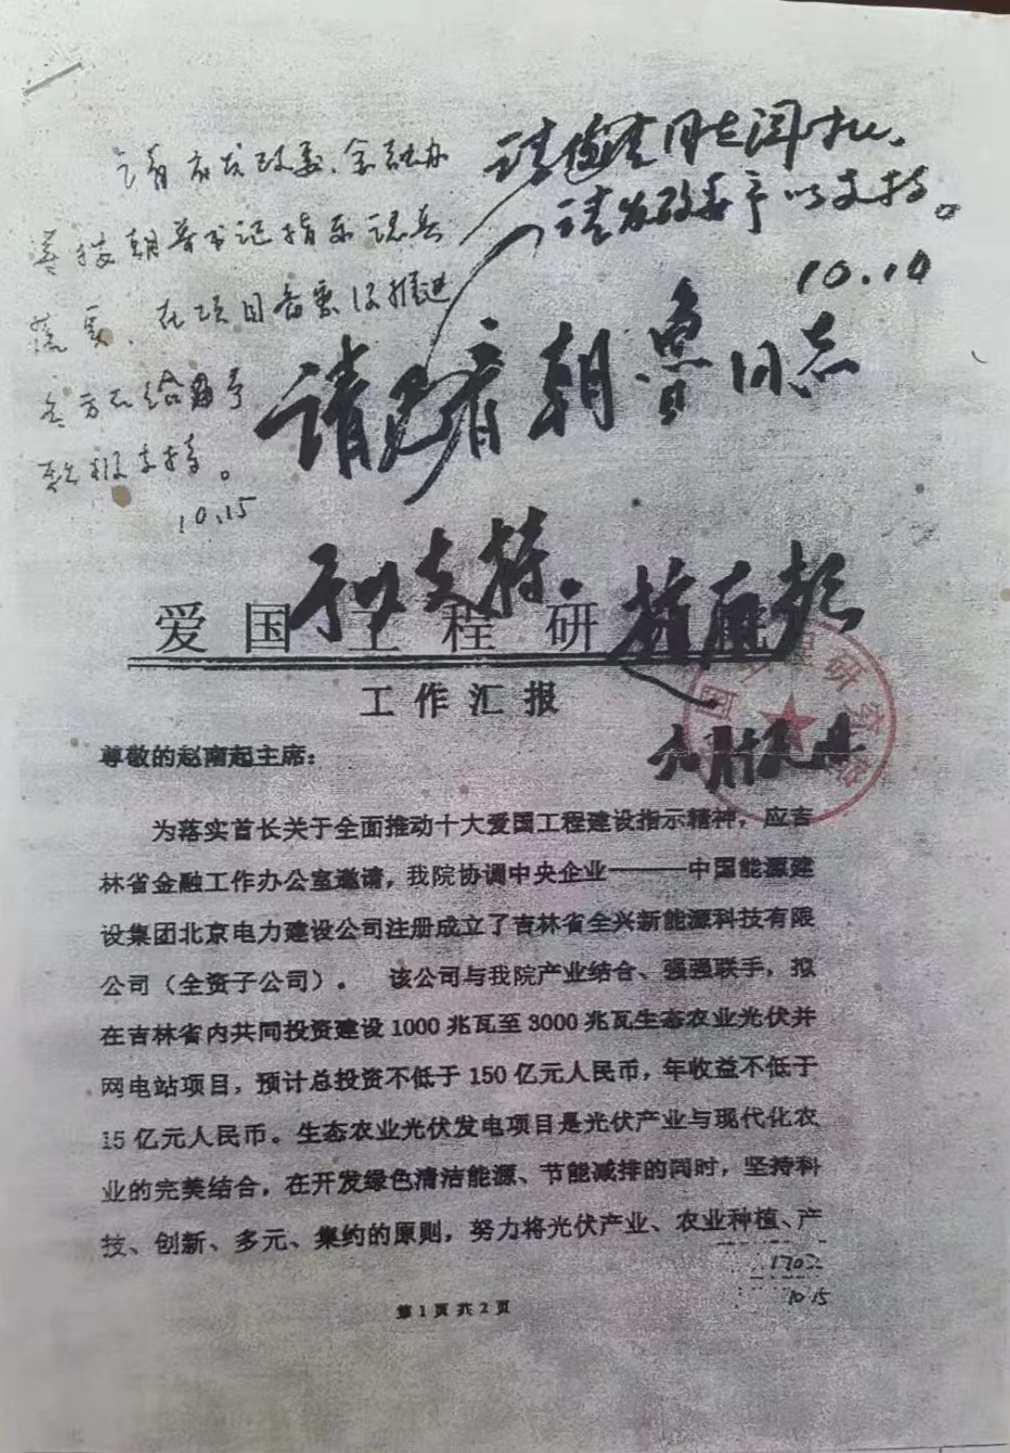 请发改委、金融办
朝鲁书记指示认真
落实,在项目备案及推进
各方面给予
积极支持。
10.15
请 同志阅批。
请发改委予以支持。
10.10
请巴音朝鲁同志
予以支持。 赵南起
爱国工程研
工作汇报
尊敬的赵南起主席:
为落实首长关于全面推动十大爱国工程建设指示精神,应吉
林省金融工作办公室邀请,我院协调中央企业———中国能源建
设集团北京电力建设公司注册成立了吉林省全兴新能源科技有限
公司(全资子公司)。 该公司与我院产业结合、强强联手,拟
在吉林省内共同投资建设1000兆瓦至3000兆瓦生态农业光伏并
网电站项目,预计总投资不低于150亿元人民币,年收益不低于
15亿元人民币。生态农业光伏发电项目是光伏产业与现代化农
业的完美结合,在开发绿色清洁能源、节能减排的同时,坚持科
技、创新、多元、集约的原则,努力将光伏产业、农业种植、产
1702
10.15
第1页共2页